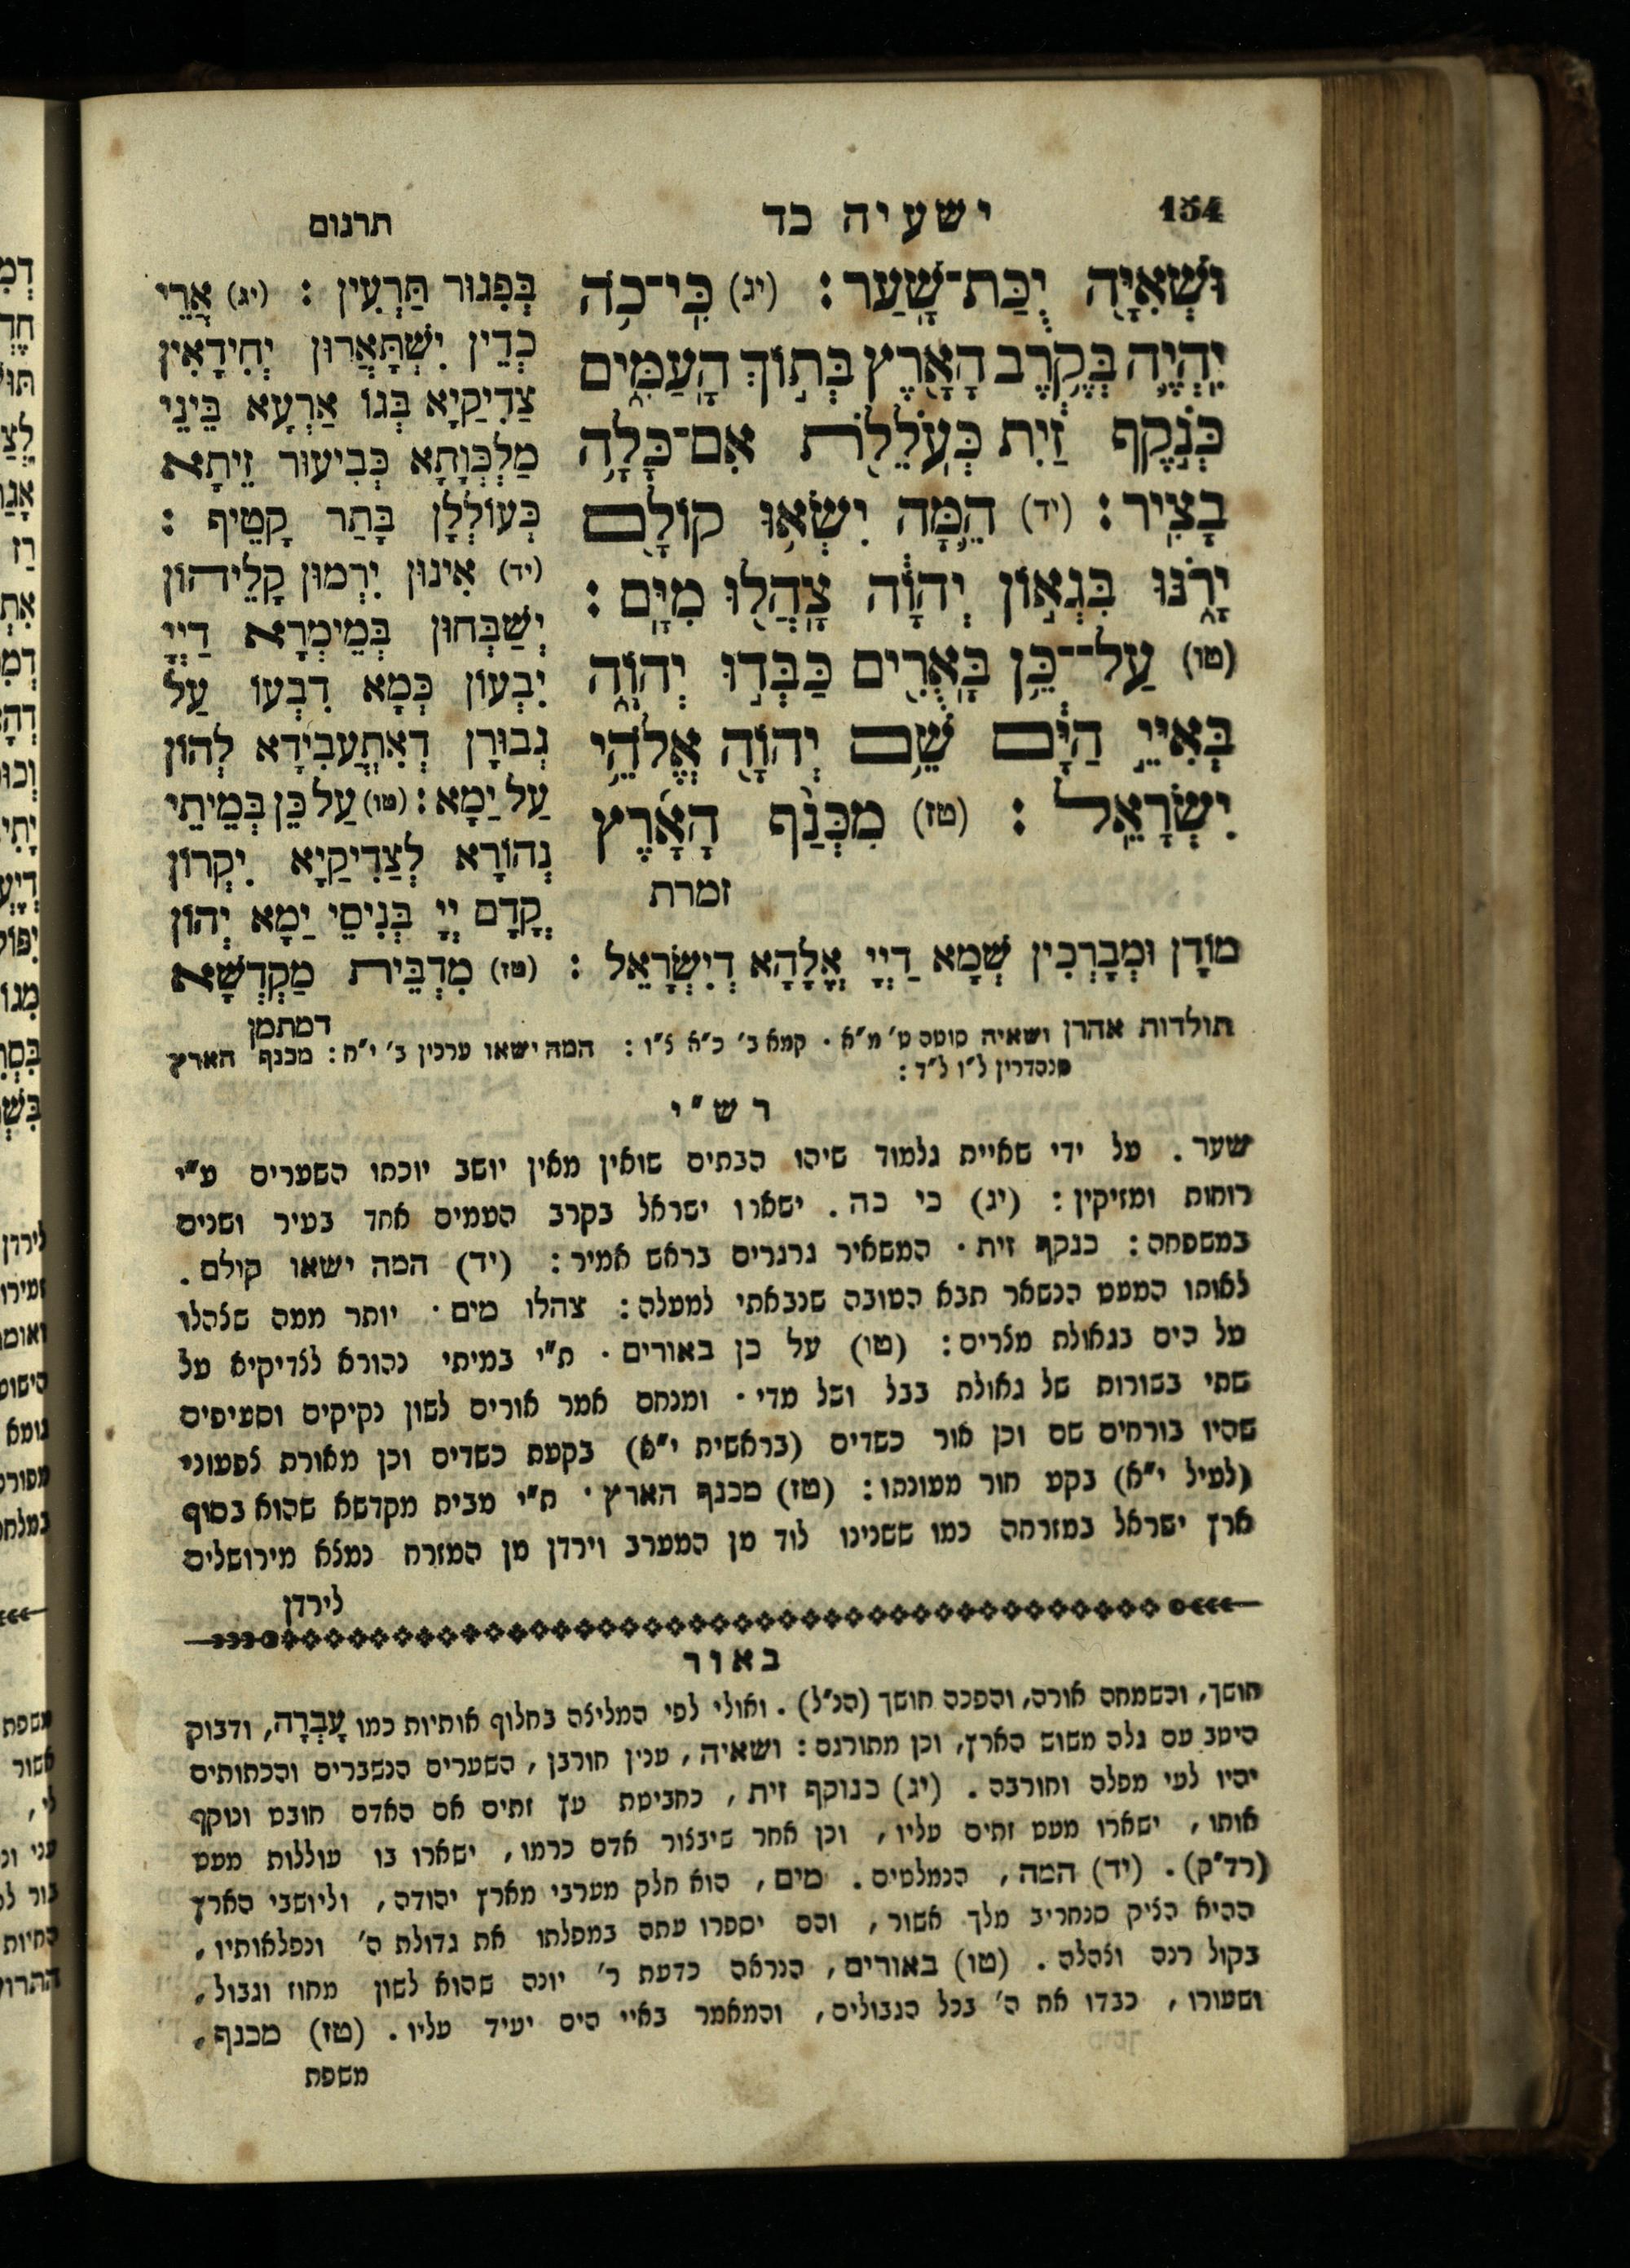 154
ישעיה כד
תרגום
וּשְׁאִיָּ֖ה יֻכַּת־שָֽׁעַר׃ (יג) כִּ֣י־כֹ֥ה
יִֽהְיֶ֛ה בְּקֶ֥רֶב הָאָ֖רֶץ בְּת֣וֹךְ הָֽעַמִּ֑ים
כְּנֹ֣קֶף זַ֔יִת כְּעֽוֹלֵלֹ֖ת אִם־כָּלָ֥ה
בָצִֽיר׃ (יד) הֵ֛מָּה יִשְׂא֥וּ קוֹלָ֖ם
יָרֹ֑נּוּ בִּגְא֣וֹן יְהוָֹ֔ה צָֽהֲל֖וּ מִיָּֽם׃
(טו) עַל־כֵּ֥ן בָּֽאֻרִ֖ים כַּבְּד֣וּ יְהוָֹ֑ה
בְּאִיֵּ֣י הַיָּ֔ם שֵׁ֥ם יְהוָֹ֖ה אֱלֹהֵ֥י
יִשְׂרָאֵֽל׃ (טז) מִכְּנַ֨ף הָאָ֜רֶץ
זמרת
בְּפִגּוּר תַּרְעִין׃ (יג) אֲרֵי
כְדֵין יִשְׁתָּאֲרוּן יְחִידָאִין
צַדִיקַיָא בְּגוֹ אַרְעָא בֵּינֵי
מַלְכְּוָתָא כְּבִיעוּר זֵיתָא
כְּעוֹלְלָן בָּתַר קָטֵיף׃
(יד) אִינוּן יִרְמוּן קָלֵיהוֹן
יְשַׁבְּחוּן בְּמֵימְרָא דַיְיָ
יִבְעוֹן כְּמָא דִבְעוֹ עַל
גְבוּרָן דְאִתְעֲבִידָא לְהוֹן
עַל יַמָא׃ (טו) עַל כֵּן בְּמֵיתֵי
נְהוֹרָא לְצַדִיקַיָא יִקְרוּן
קֳדָם יְיָ בְּנִיסֵי יַמָא יְהוֹן
מוֹדָן וּמְבָרְכִין שְׁמָא דַיְיָ אֱלָהָא דְיִשְׂרָאֵל׃ (טז) מִדְבֵּית מַקְדְשָׁא
דמתמן
תולדות אהרן ושאיה סוטה ט׳ מ״א · קמא ב׳ כ״א צ״ו : המה ישאו ערכין ב׳ י״ח : מכנף הארץ
סנהדרין ל״ו ל״ד :
רש״י
שער . על ידי שאיית גלמוד שיהו הבתים שואין מאין יושב יוכתו השערים ע״י
רוחות ומזיקין : (יג) כי כה . ישארו ישראל בקרב העמים אחד בעיר ושנים
במשפחה : כנקף זית · המשאיר גרגרים בראש אמיר : (יד) המה ישאו קולם .
לאותו המעט הנשאר תבא הטובה שנבאתי למעלה : צהלו מים · יותר ממה שצהלו
על הים בגאולת מצרים : (טו) על כן באורים · ת״י במיתי נהורא לצדיקיא על
שתי בשורות של גאולת בבל ושל מדי · ומנחם אמר אורים לשון נקיקים וסעיפים
שהיו בורחים שם וכן אור כשדים (בראשית י״א) בקעת כשדים וכן מאורת צפעוני
(לעיל י״א) בקע חור מעונתו : (טז) מכנף הארץ · ת״י מבית מקדשא שהוא בסוף
ארץ ישראל במזרחה כמו ששנינו לוד מן המערב וירדן מן המזרח נמצא מירושלים
לירדן
באור
חושך, והשמחה אורה, והפכה חושך (הנ״ל) . ואולי לפי המליצה בחלוף אותיות כמו עָבְרָה, ודבוק
היטב עם גלה משוש הארץ, וכן מתורגם : ושאיה, ענין חורבן, השערים הנשברים והכתותים
יהיו לעי מפלה וחורבה . (יג) כנוקף זית, כחביטת עץ זתים אם האדם חובט ונוקף
אותו, ישארו מעט זתים עליו, וכן אחר שיבצור אדם כרמו, ישארו בו עוללות מעט
(רד״ק) . (יד) המה, הנמלטים . מים, הוא חלק מערבי מארץ יהודה, וליושבי הארץ
ההיא הציק סנחריב מלך אשור, והם יספרו עתה במפלתו את גדולת ה׳ ונפלאותיו,
בקול רנה וצהלה . (טו) באורים, הנראה כדעת ר׳ יונה שהוא לשון מחוז וגבול,
ושעורו, כבדו את ה׳ בכל הגבולים, והמאמר באיי הים יעיד עליו . (טז) מכנף,
משפת